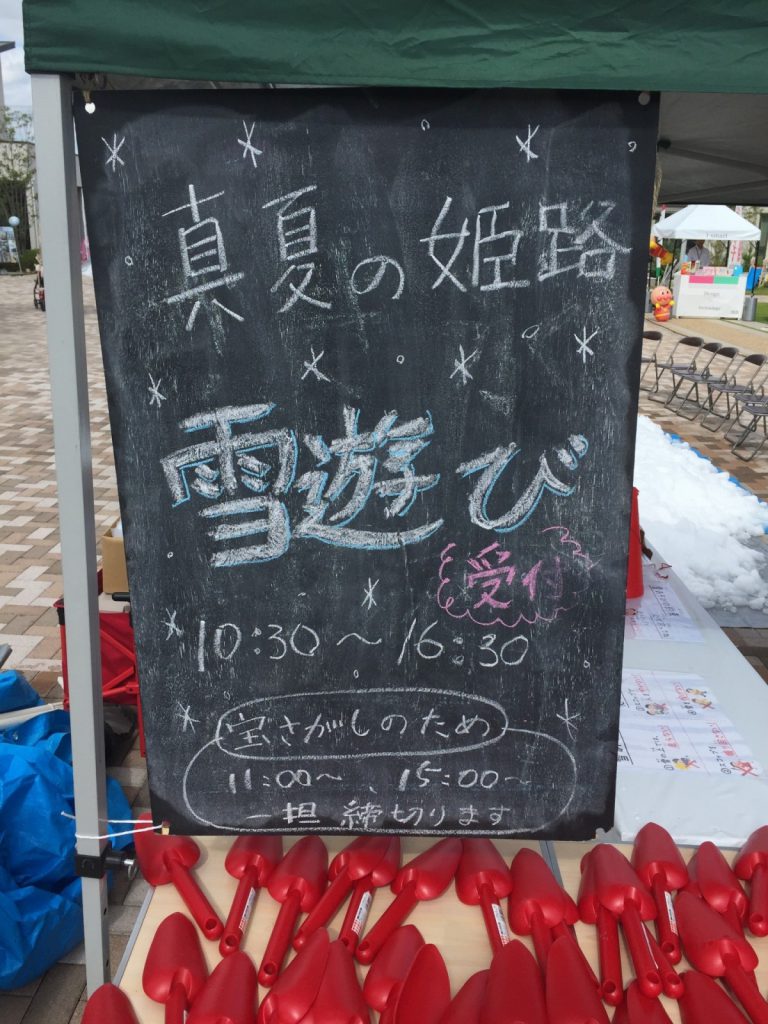 真夏の姫路
雪遊び
受付
10:30～16:30
宝さがしのため
11:00～、15:00～
一担 締切ります